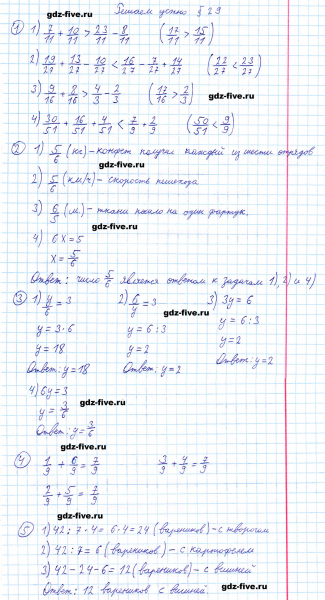 Решаем устно § 29
gdz-five.ru
① 1) 7/11 + 10/11 > 23/11 - 8/11 (17/11 > 15/11)
2) 19/27 + 13/27 - 10/27 < 16/27 - 7/27 + 14/27 (22/27 < 23/27)
gdz-five.ru
3) 9/16 + 8/16 > 4/3 - 2/3 (17/16 > 2/3)
gdz-five.ru
4) 30/51 + 16/51 + 4/51 < 7/9 + 2/9 (50/51 < 9/9)
② 1) 5/6 (кг) - конфет получил каждый из шести отрядов
gdz-five.ru
2) 5/6 (км/ч) - скорость пешехода
3) 6/5 (м) - ткани пошло на один фартук.
gdz-five.ru
4) 6x = 5
x = 5/6
Ответ: число 5/6 является ответом к задачам 1), 2) и 4)
gdz-five.ru
③ 1) y/6 = 3 2) 6/y = 3 3) 3y = 6
gdz-five.ru
y = 3·6 y = 6:3 y = 6:3
y = 18 y = 2 y = 2
Ответ: y = 18 Ответ: y = 2 Ответ: y = 2
4) 6y = 3
gdz-five.ru
y = 3/6
Ответ: y = 3/6
gdz-five.ru
④ 1/9 + 6/9 = 7/9 3/9 + 4/9 = 7/9
2/9 + 5/9 = 7/9
gdz-five.ru
⑤ 1) 42:7·4 = 6·4 = 24 (вареников) - с творогом
2) 42:7 = 6 (вареников) - с картофелем
3) 42-24-6 = 12 (вареников) - с вишней
Ответ: 12 вареников с вишней.
gdz-five.ru